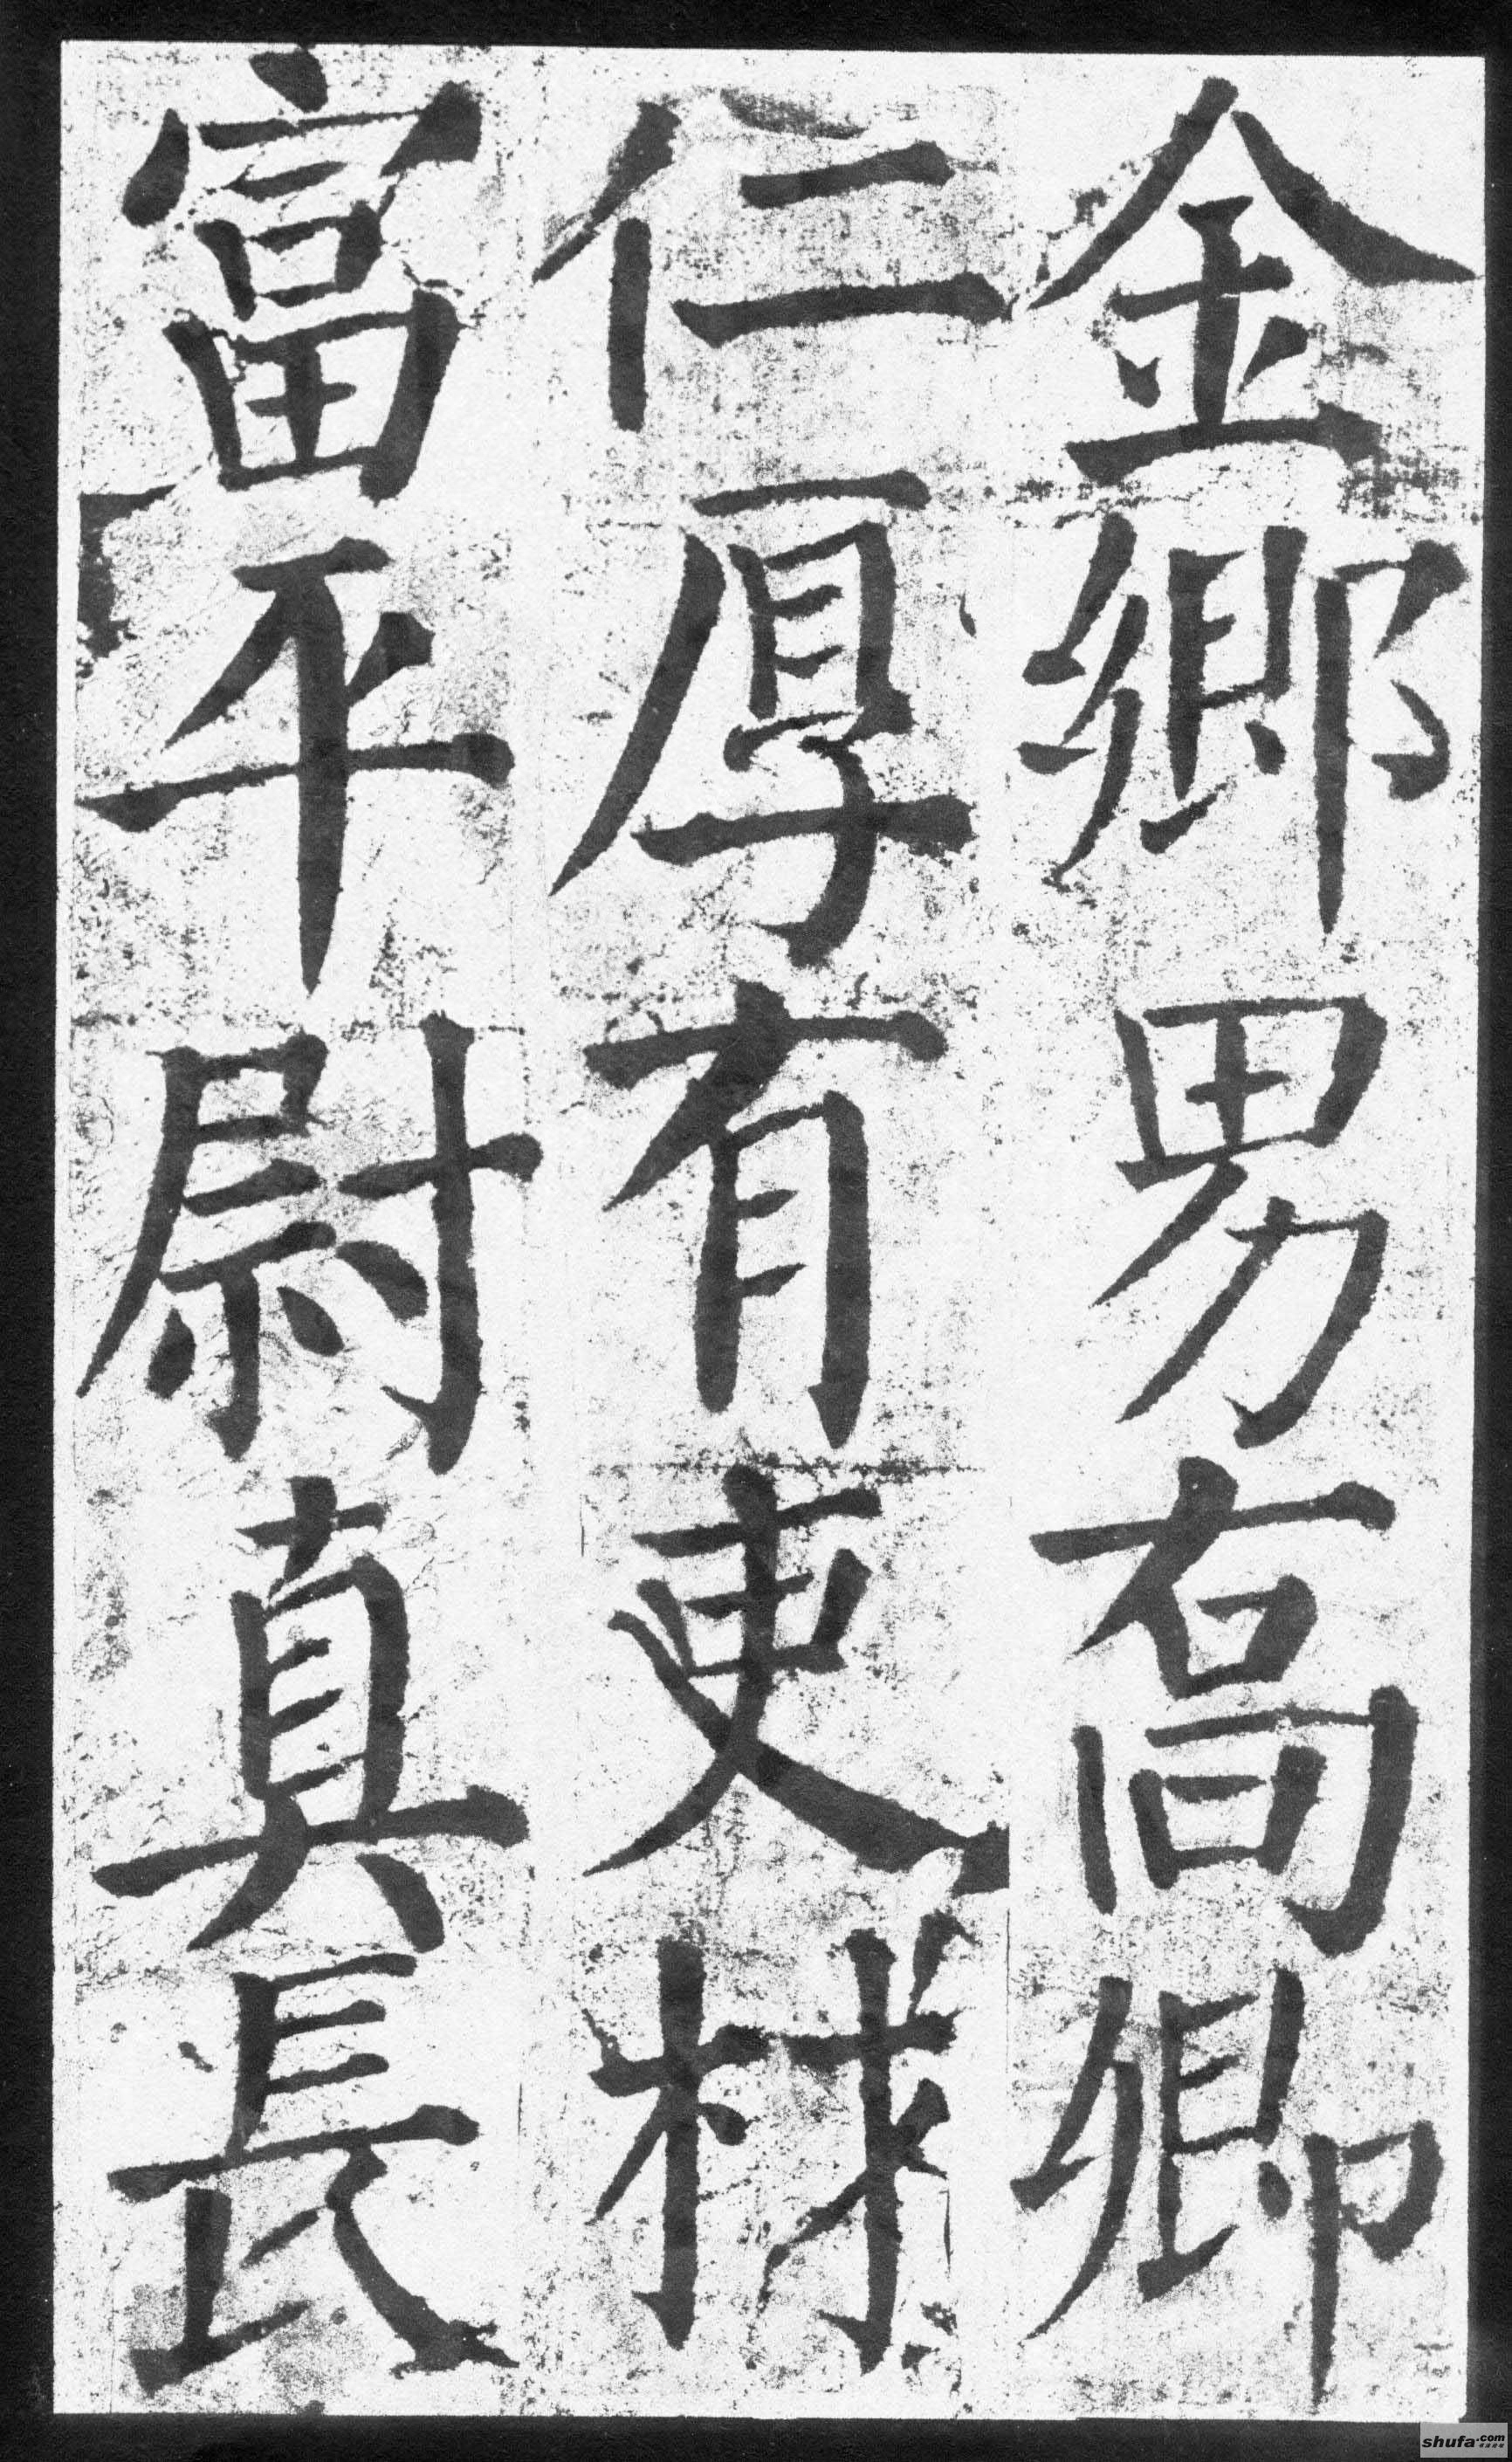 金鄉男右高卿
仁厚有吏材
富平尉真長
shufa.com